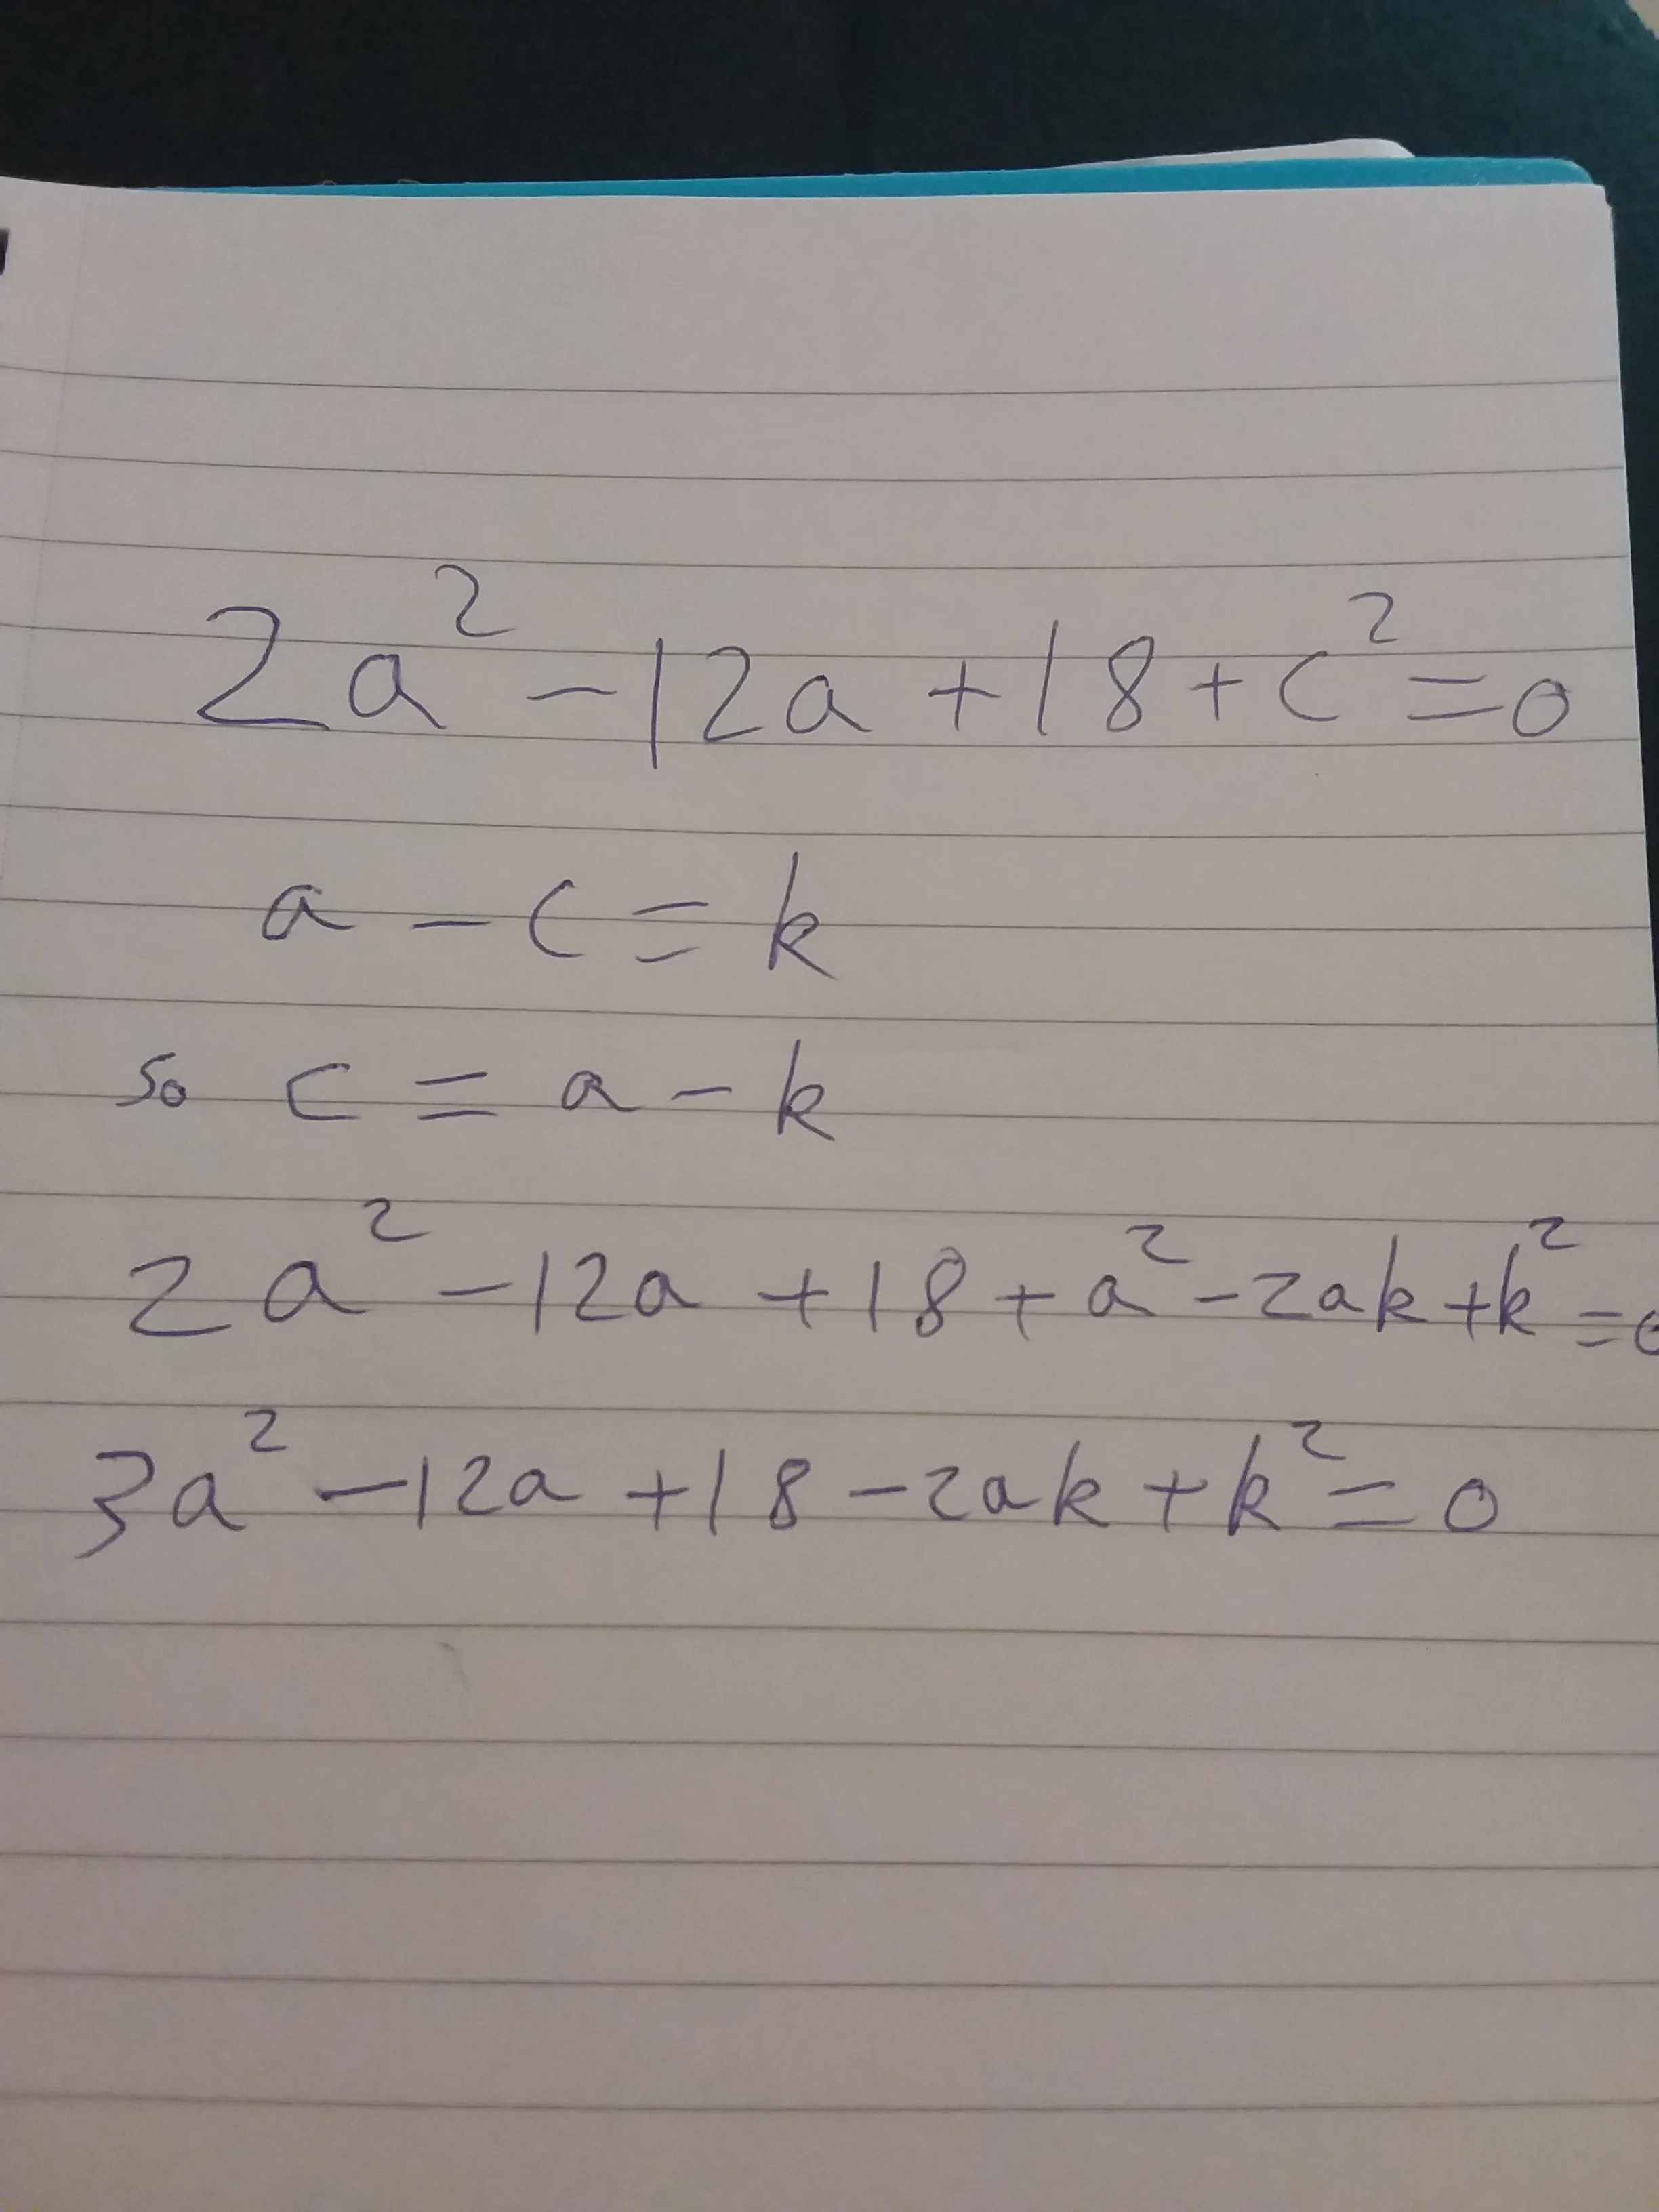 2a² - 12a + 18 + c² = 0
a - c = k
so c = a - k
2a² - 12a + 18 + a² - 2ak + k² = 0
3a² - 12a + 18 - 2ak + k² = 0